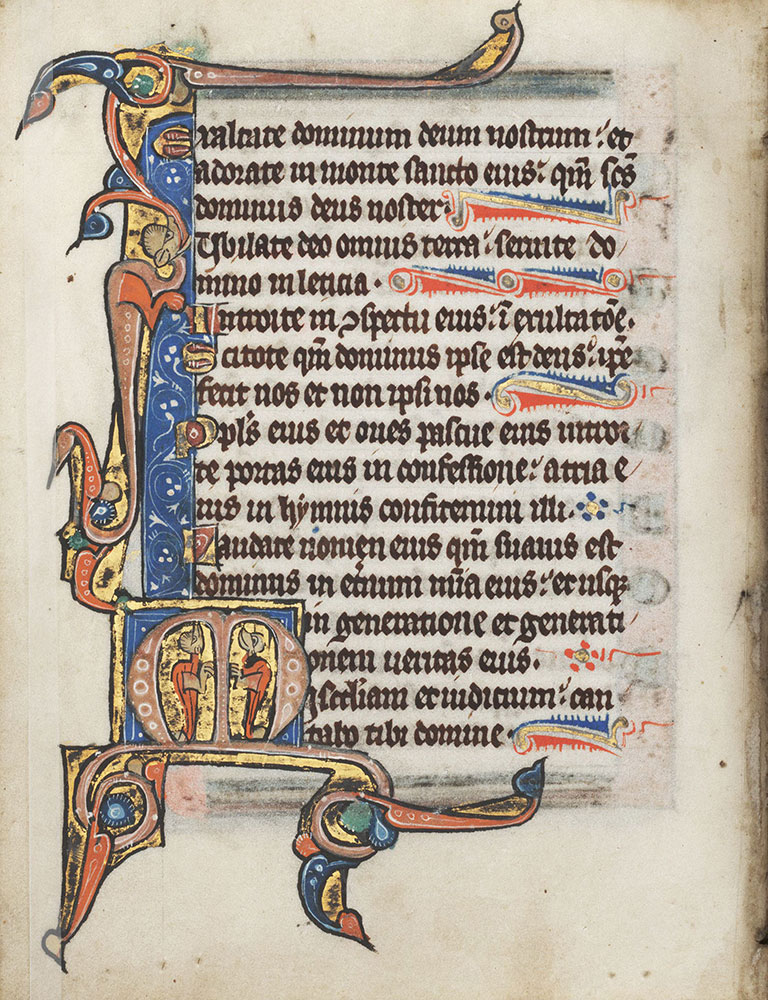 Exaltate dominum deum nostrum: et
adorate in monte sancto eius: qm̄ scs̄
dominus deus noster.
Iubilate deo omnis terra: seruite do
mino in leticia.
Introite in ꝯspectu eius: ī exultatōe.
Scitote qm̄ dominus ipse est deus: ip̄e
fecit nos et non ipsi nos.
Popls̄ eius et oues pascue eius introi
te portas eius in confessione: atria e
ius in hymnis confitemini illi.
Laudate nomen eius qm̄ suauis est
dominus in et̄num mīa eius: et usqꝫ
in generatione et generati
onem ueritas eius.
Misericordiam et iudicium: can
tabo tibi domine.